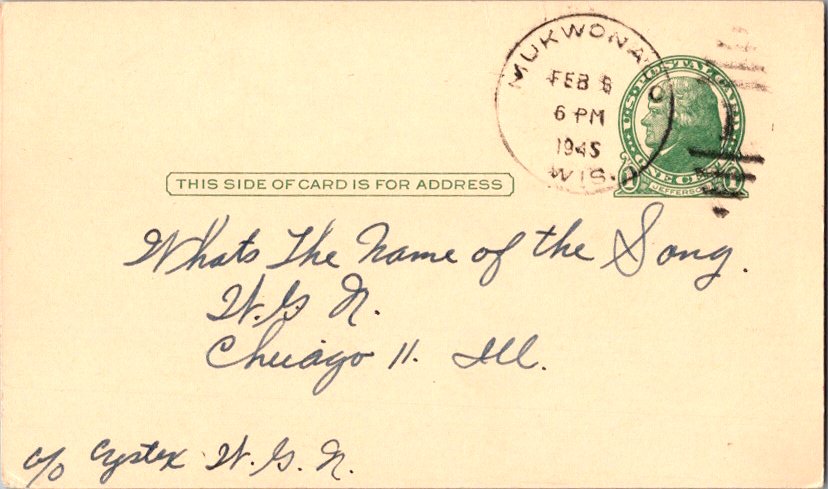 MUKWONAGO
FEB 6
6 PM
1945
WIS.
U.S. POSTAL CARD
ONE CENT
1 JEFFERSON 1
THIS SIDE OF CARD IS FOR ADDRESS
Whats The Name of the Song.
W.G.N.
Chicago 11. Ill.
c/o Cystex W.G.N.